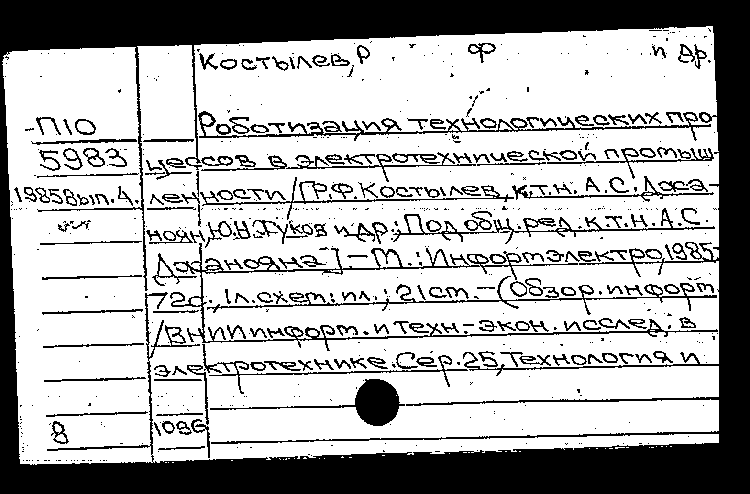 Костылев, Р Ф и др.
-П10 Роботизация технологических про-
5983 цессов в электротехнической промыш-
1985Вып.4. ленности / [Р.Ф. Костылев, к.т.н. А.С. Джа-
ноян, Ю.Н. Жуков и др.; Под общ. ред. к.т.н. А.С.
Джанояна]. - М.: Информэлектро, 1985.-
72с., 1л. схем: ил.; 21см. - (Обзор. информ.
/ВНИИ информ. и техн.-экон. исслед. в
электротехнике. Сер. 25, Технология и
8 1086